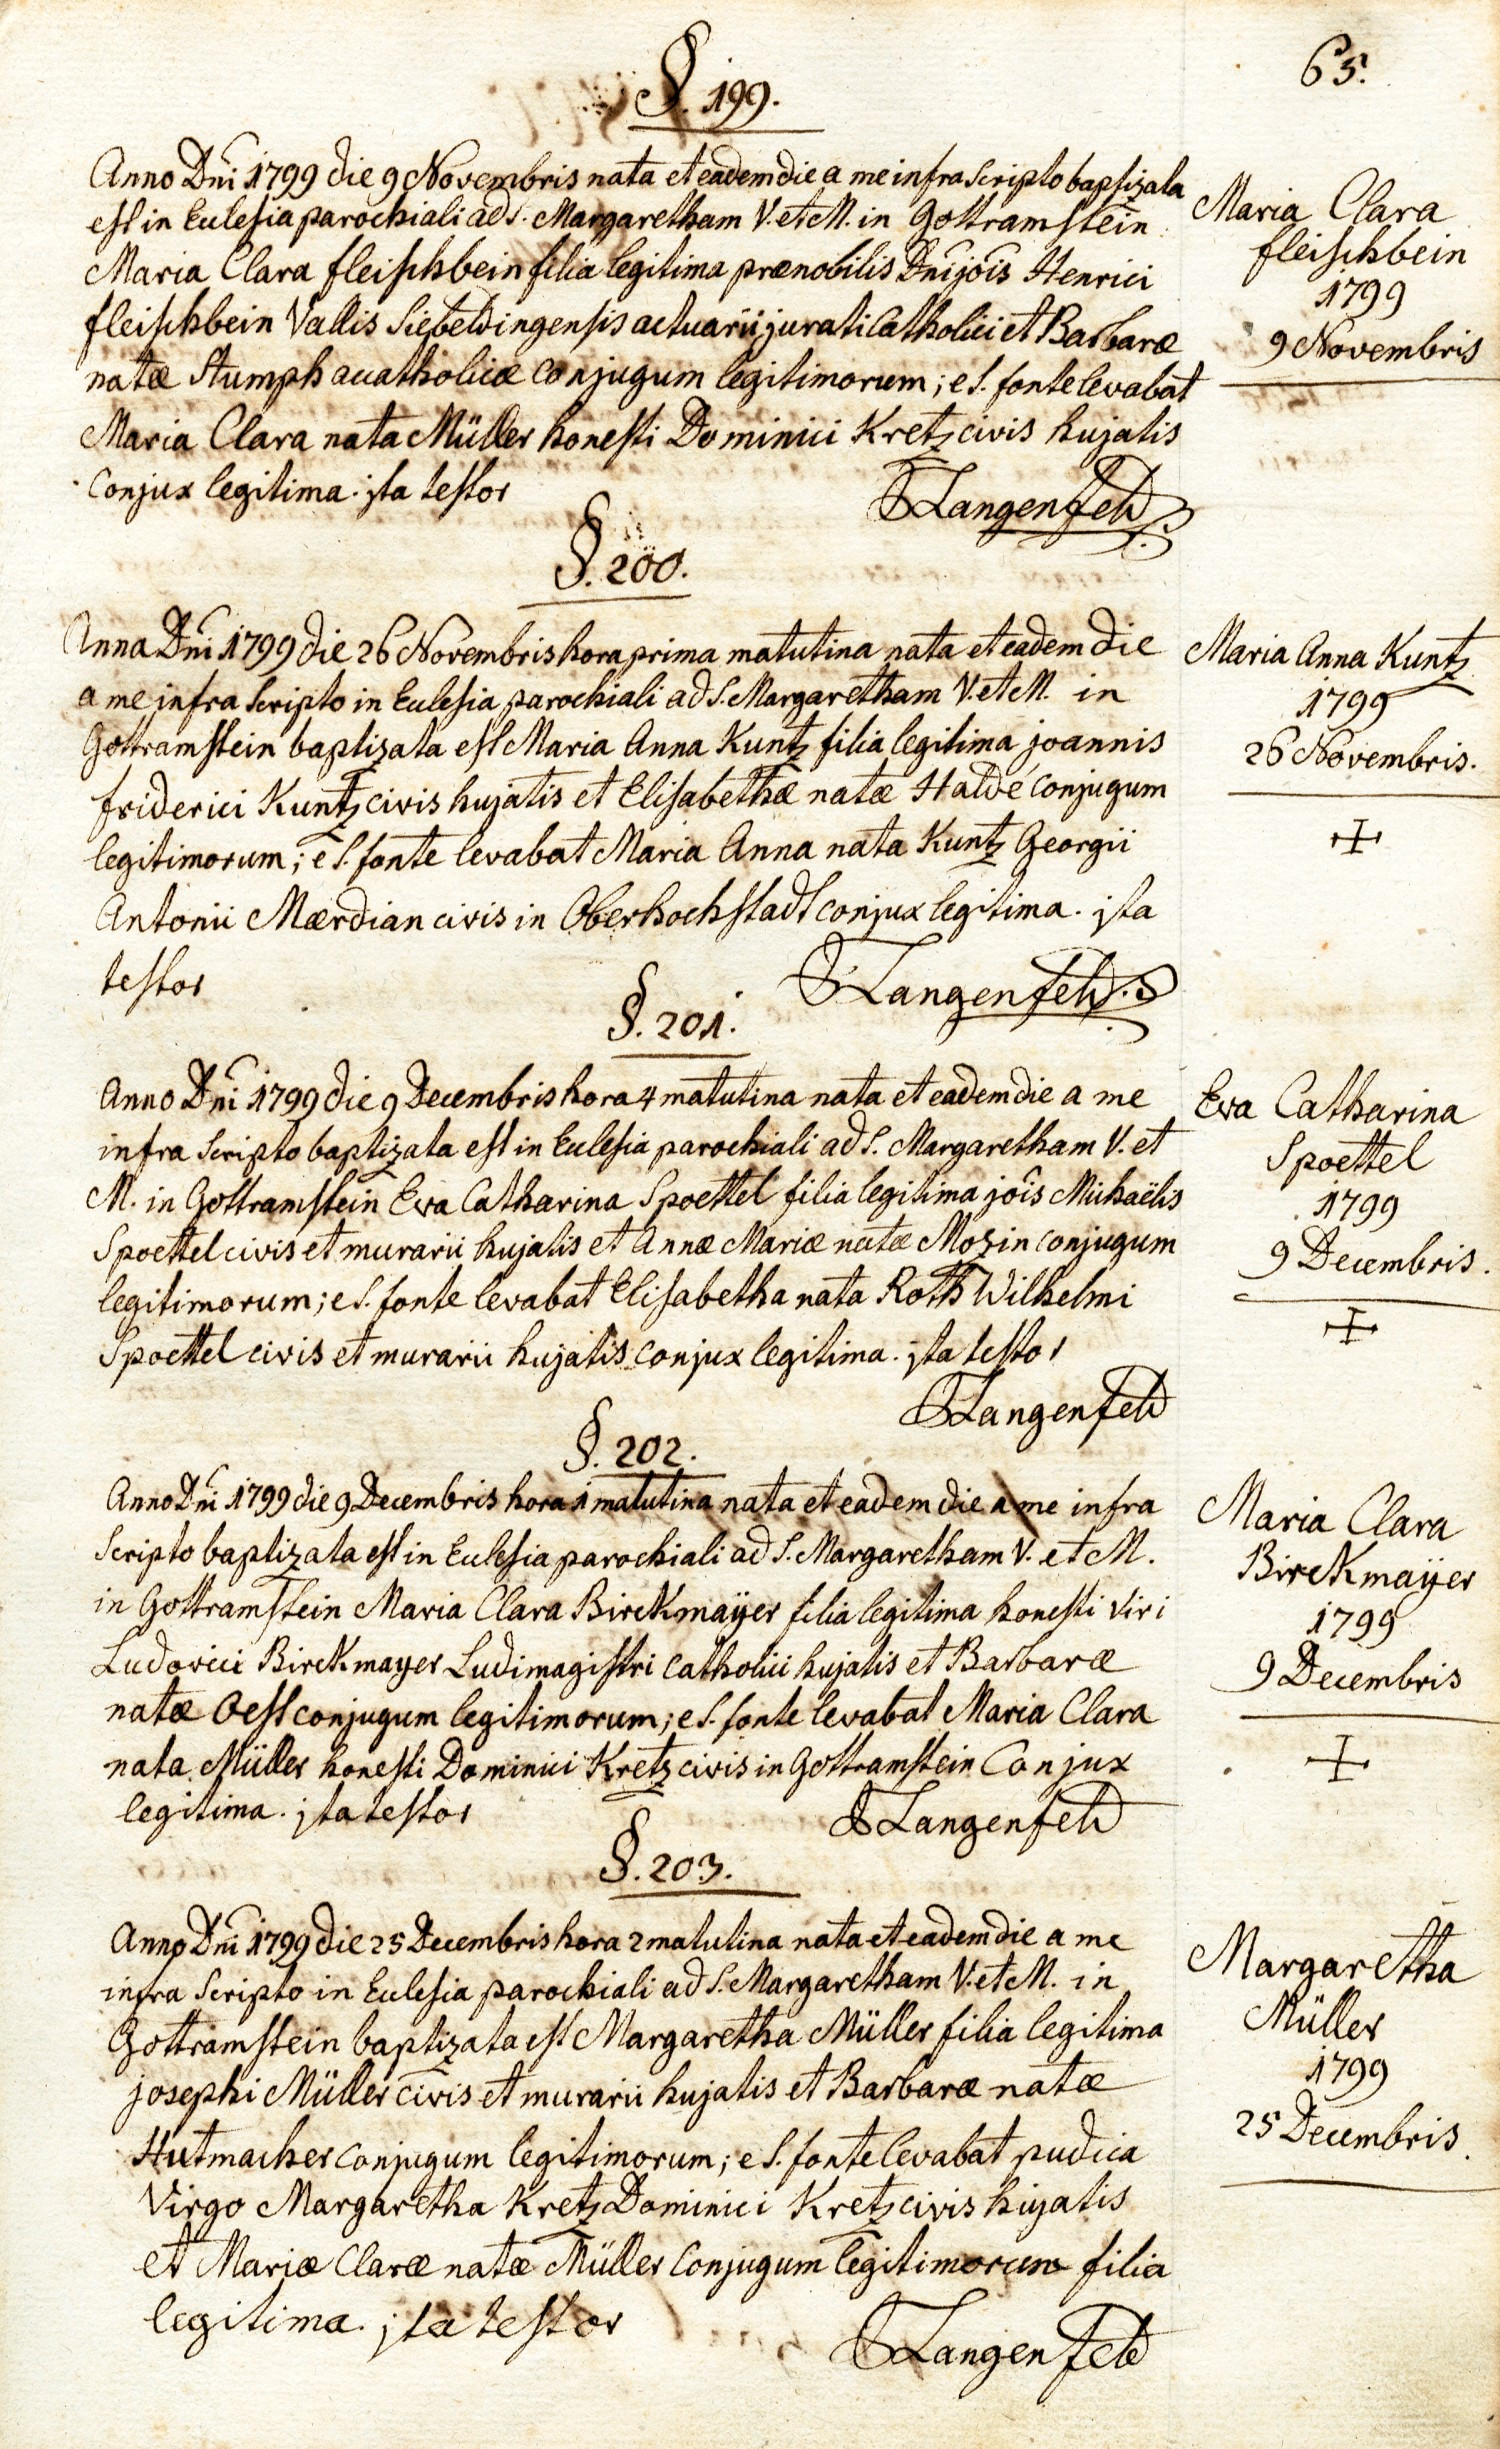 65.
§. 199.
Anno Dni 1799 die 9 Novembris nata et eadem die a me infra scripto baptizata
est in Ecclesia parochiali ad S. Margaretham V. et M. in Gottramstein
Maria Clara fleischbein filia legitima prænobilis Dni jois Henrici
fleischbein Vallis Siebeldingensis actuarii jurati Catholici et Barbaræ
natæ Stumph acatholicæ conjugum legitimorum; e S. fonte levabat
Maria Clara nata Müller honesti Dominici Kretz civis hujatis
Conjux legitima. jta testor
Langenfeld
Maria Clara
fleischbein
1799
9 Novembris
§. 200.
Anna Dni 1799 die 26 Novembris hora prima matutina nata et eadem die
a me jnfra scripto in Ecclesia parochiali ad S. Margaretham V. et M. in
Gottramstein baptizata est Maria Anna Kuntz filia legitima joannis
friderici Kuntz civis hujatis et Elisabethæ natæ Haldé conjugum
legitimorum; e S. fonte levabat Maria Anna nata Kuntz Georgii
Antonii Mærdian civis in Oberhochstadt conjux legitima. jta
testor
Langenfeld.
Maria Anna Kuntz
1799
26 Novembris.
§. 201.
Anno Dni 1799 die 9 Decembris hora 4 matutina nata et eadem die a me
infra scripto baptizata est in Ecclesia parochiali ad S. Margaretham V. et
M. in Gottramstein Eva Catharina Spoettel filia legitima jois Michaëlis
Spoettel civis et murarii hujatis et Annæ Mariæ natæ Mozin conjugum
legitimorum; e S. fonte levabat Elisabetha nata Roth Wilhelmi
Spoettel civis et murarii hujatis conjux legitima. jta testor
Langenfeld
Eva Catharina
Spoettel
1799
9 Decembris.
§. 202.
Anno Dni 1799 die 9 Decembris hora 1 matutina nata et eadem die a me infra
scripto baptizata est in Ecclesia parochiali ad S. Margaretham V. et M.
in Gottramstein Maria Clara Birckmaÿer filia legitima honesti viri
Ludovici Birckmayer Ludimagistri catholici hujatis et Barbaræ
natæ Oest conjugum legitimorum; e S. fonte levabat Maria Clara
nata Müller honesti Dominici Kretz civis in Gottramstein Conjux
legitima. jta testor
Langenfeld
Maria Clara
Birckmaÿer
1799
9 Decembris
§. 203.
Anno Dni 1799 die 25 Decembris hora 2 matutina nata et eadem die a me
infra scripto in Ecclesia parochiali ad S. Margaretham V. et M. in
Gottramstein baptizata est Margaretha Müller filia legitima
josephi Müller civis et murarii hujatis et Barbaræ natæ
Hutmacher conjugum legitimorum; e S. fonte levabat pudica
Virgo Margaretha Kretz Dominici Kretz civis hujatis
et Mariæ Claræ natæ Müller conjugum legitimorum filia
legitima. jta testor
Langenfeld
Margaretha
Müller
1799
25 Decembris.